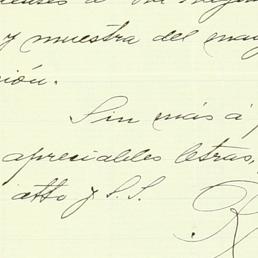 y muestra del may
ión.
Sin más á
apreciables letras,
atto y S. S.